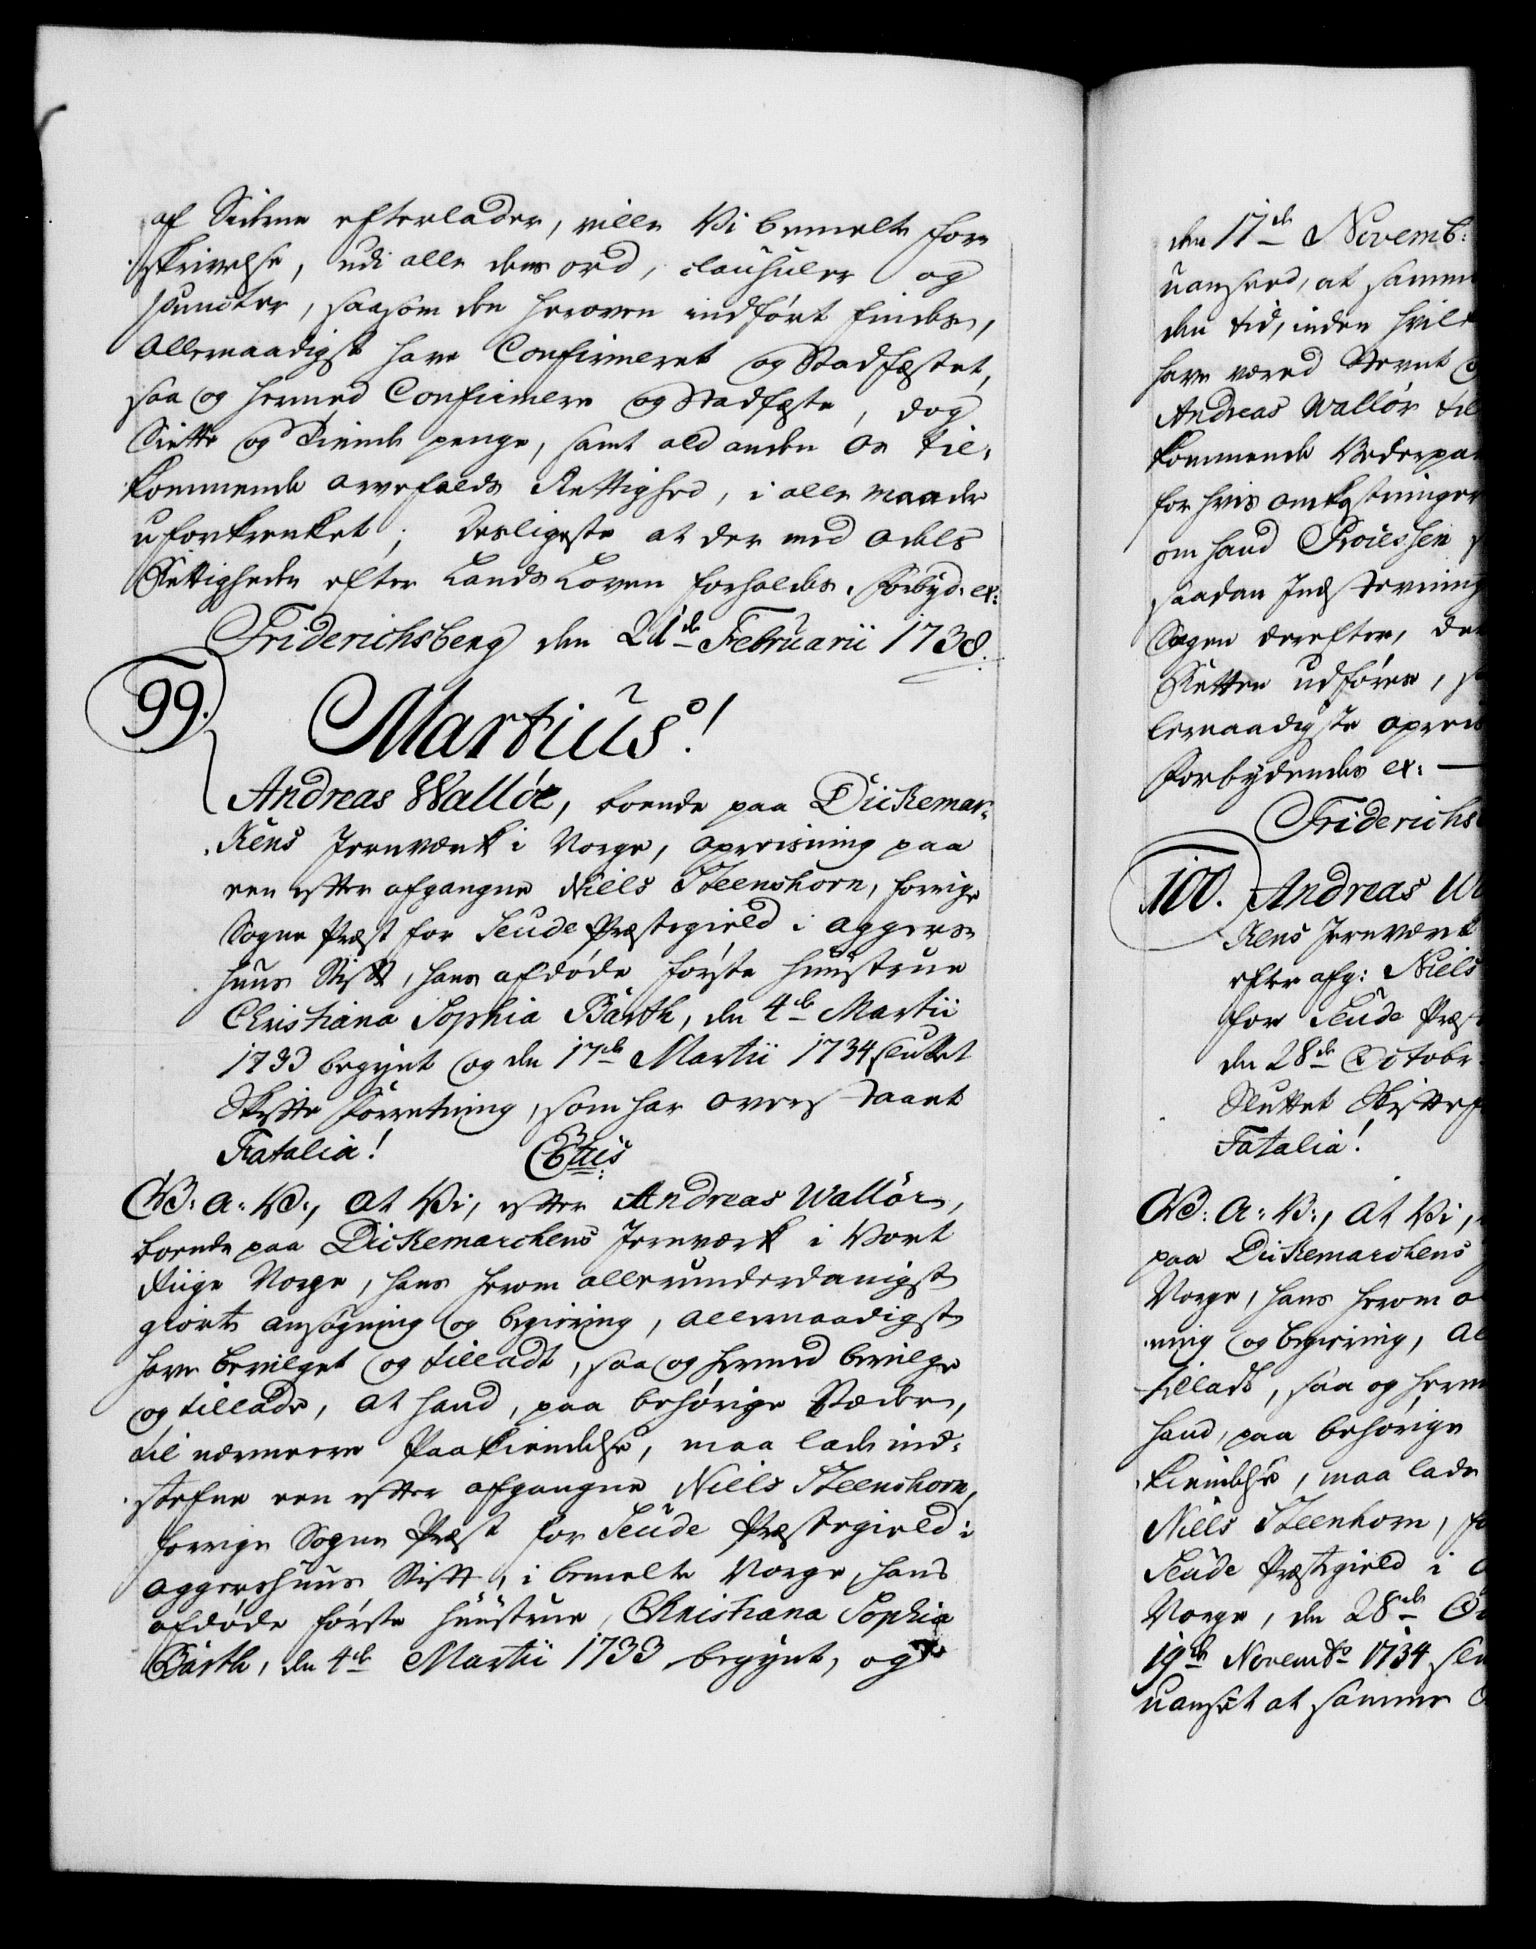 af Sielene efterlader, ville Vi bemelte for
skrivelse, udi alle dens ord, clausuler og
puncter, saasom den heroven indført findes,
Allernaadigst have Confirmeret og Stadfæstet,
saa og hermed Confirmere og Stadfæste, dog
Siette og Tiende penge, samt ald anden Os til-
kommende arvefalds Rettighed, i alle maader
uforkrenket; Desligeste at der med Odels
Rettigheden efter Lands Loven forholdes. Forbyd: ex:
Friderichsberg den 21de Februarii 1738.
99.
Martius!
Andreas Walløe, boende paa Dickemar-
kens Jernværk i Norge, opreisning paa
een efter afgangne Niels Steenhorn, forrige
Sogne Præst for Seude Præstegield i Aggers-
huus Stift, hans afdøde første huustrue
Christiana Sophia Barth, den 4de Martii
1733 begynt og den 17de Martii 1734 sluttet
Skifte Forretning, som har oversstaaet
Fatalia!
C6tus
G: A: V:, At Vi, efter Andreas Walløes,
boende paa Dickemarchens Jernværk i Vort
Riige Norge, hans herom allerunderdanigst
giorte ansøgning og begiering, Allernaadigst
have bevilget og tilladt, saa og hermed bevilge
og tillade, at hand, paa behørige Stæder,
til nærmere Paakiendelse, maa lade ind-
stefne een efter afgangne Niels Steenhorn,
forrige Sogne Præst for Seude Præstegield i
Aggershuus Stift, i bemelte Norge, hans
afdøde første huustrue, Christiana Sophia
Barth, den 4de Martii 1733 begynt, og
den 17de Novemb:
uanseed, at samme
den tid, inden hvilk
have væred Stevnt
Andreas Walløe til
kommende Vederpar
for hvis omkostninger
om hand Proiessen
saadan Indstevning
Sagen derefter, de
Retten udføres, s
lernaadigste opreis
Forbydendes ex:
Friderichs
100.
Andreas W
kens Jernværk
efter afg: Niels
for Seude Præs
den 28de Octobr
Sluttet Skiftef
Fatalia!
G: A: V:, At Vi,
paa Dickemarchens
Norge, hans herom a
ning og begiering, Al
tilladt, saa og herm
hand, paa behørige
kiendelse, maa lade
Niels Steenhorn, f
Seude Præstegield i
Norge, den 28de O
19de Novembr 1734 slu
uanset at samme